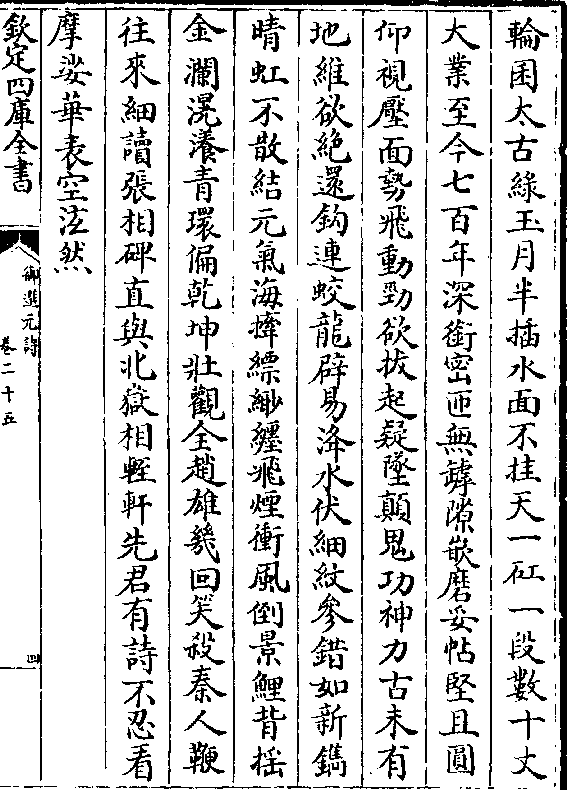 輪囷太古綠玉月半插水面不挂天一矼一段數十丈
大業至今七百年深銜密匝無罅隙嵌磨妥帖堅且圓
仰視壓面勢飛動勁欲拔起疑墜顛鬼功神力古未有
地維欲絶還鈎連蛟龍辟易洚水伏細紋參錯如新鐫
晴虹不散結元氣海擡縹緲纒飛煙衝風倒景鯉背揺
金瀾滉瀁青環偏乾坤壯觀全趙雄幾回笑殺秦人鞭
往來細讀張相碑直與北嶽相輊軒先君有詩不忍看
摩娑華表空泫然
欽定四庫全書
御選元詩
卷二十五
四